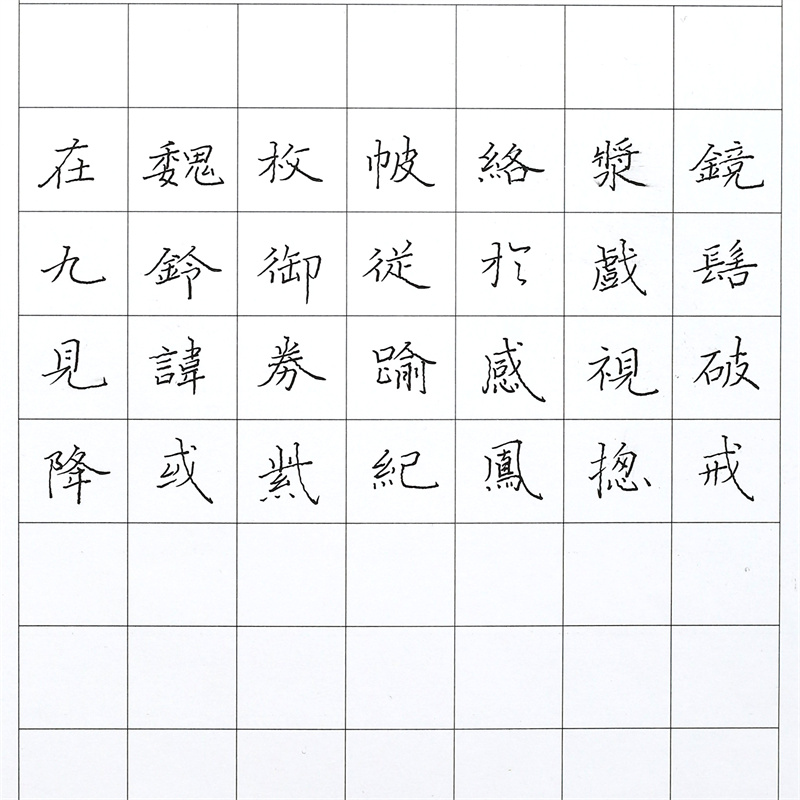 在魏枚帔絡漿鏡
九鈴御從於戲髻
見諱券踰感視破
降或紫紀鳳揔戒